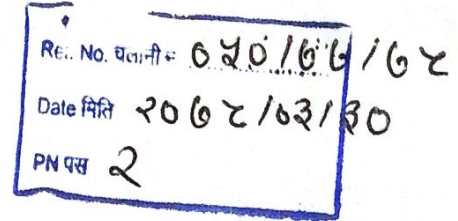 Re.. No. चलानी ०५०/७७/७८
Date मिति २०७८/०३/३०
PN पस २